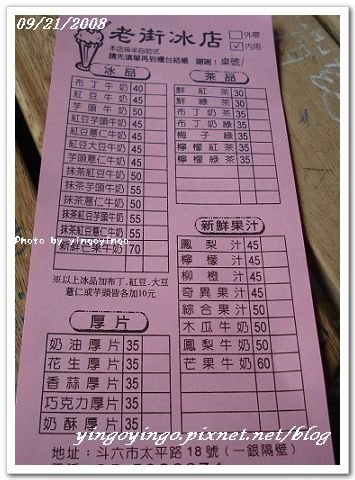 09/21/2008
老街冰店
□外帶
☑內用
本店採半自助式
請先填單再到櫃台結帳 謝謝! 桌號/
冰品
布丁牛奶 40
紅豆牛奶 45
芋頭牛奶 50
紅豆芋頭牛奶 55
紅豆薏仁牛奶 45
紅豆大豆牛奶 45
芋頭薏仁牛奶 55
抹茶紅豆牛奶 50
抹茶芋頭牛奶 55
抹茶薏仁牛奶 50
抹茶紅豆芋頭牛奶 55
抹茶紅豆薏仁牛奶 55
新鮮芒果牛奶 70
※以上冰品加布丁.紅豆.大豆
薏仁或芋頭皆各加10元
厚片
奶油厚片 35
花生厚片 35
香蒜厚片 35
巧克力厚片 35
奶酥厚片 35
茶品
鮮紅茶 30
鮮綠茶 30
布丁奶茶 35
布丁奶綠 35
梅子綠 35
檸檬紅茶 35
檸檬綠茶 35
新鮮果汁
鳳梨汁 45
檸檬汁 45
柳橙汁 45
奇異果汁 50
綜合果汁 50
木瓜牛奶 50
鳳梨牛奶 50
芒果牛奶 60
地址:斗六市太平路18號(一銀隔壁)
Photo by yingoyingo
yingoyingo.pixnet.net/blog